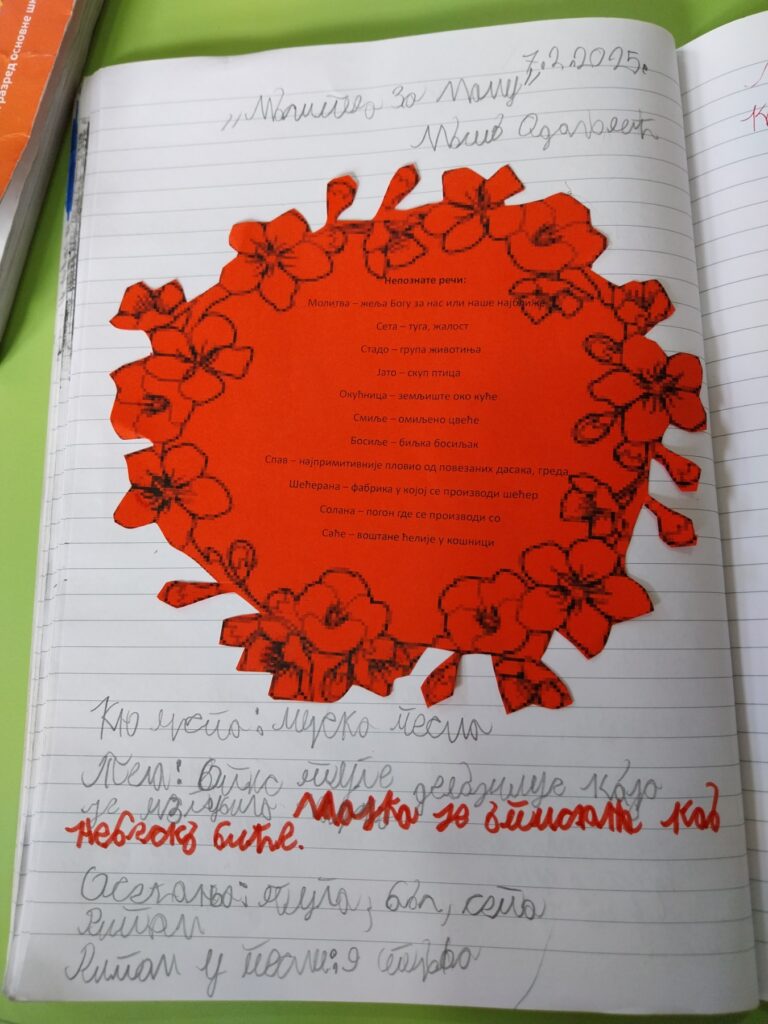 разред основне
7.2.2025.
„Молитва за маму”
Мошо Одаловић
Непознате речи:
Молитва – жеља Богу за нас или наше најближе
Сета – туга, жалост
Стадо – група животиња
Јато – скуп птица
Окућница – земљиште око куће
Смиље – омиљено цвеће
Босиље – биљка босиљак
Спав – најпримитивније пловио од повезаних дасака, греда
Шећерана – фабрика у којој се производи шећер
Солана – погон где се производи со
Саће – воштане ћелије у кошници
песма
Тема:
је Мајка је као
биће.
Осећања: туга, бол, сета
Ритам
Ритам у песми: